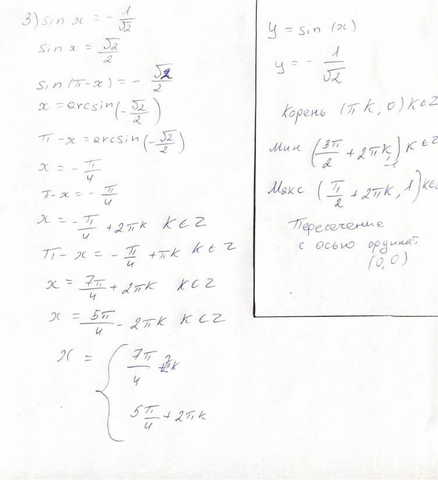 3) sin x = - 1/√2
sin x = √2/2
sin (π-x) = - √2/2
x = arcsin (-√2/2)
π - x = arcsin (-√2/2)
x = - π/4
π - x = - π/4
x = - π/4 + 2πk k ∈ Z
π - x = - π/4 + πk k ∈ Z
x = 7π/4 + 2πk k ∈ Z
x = 5π/4 - 2πk k ∈ Z
x = { 7π/4 + 2πk
5π/4 + 2πk
y = sin (x)
y = - 1/√2
Корень (πk, 0) k ∈ Z
Мин (3π/2 + 2πk, 1) k ∈ Z
Макс (π/2 + 2πk, 1) k ∈ Z
Пересечение
с осью ординат
(0,0)